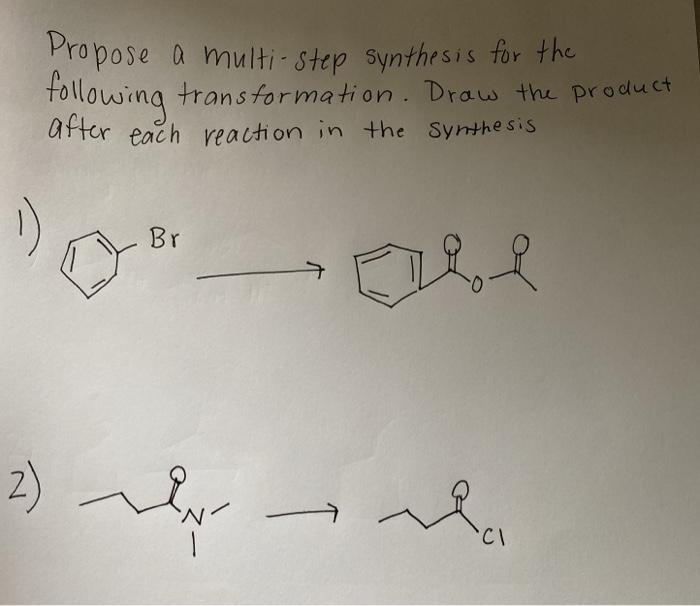 Propose a multi-step synthesis for the
following transformation. Draw the product
after each reaction in the synthesis
1)
Br
O O
O
2)
O
N
O
Cl